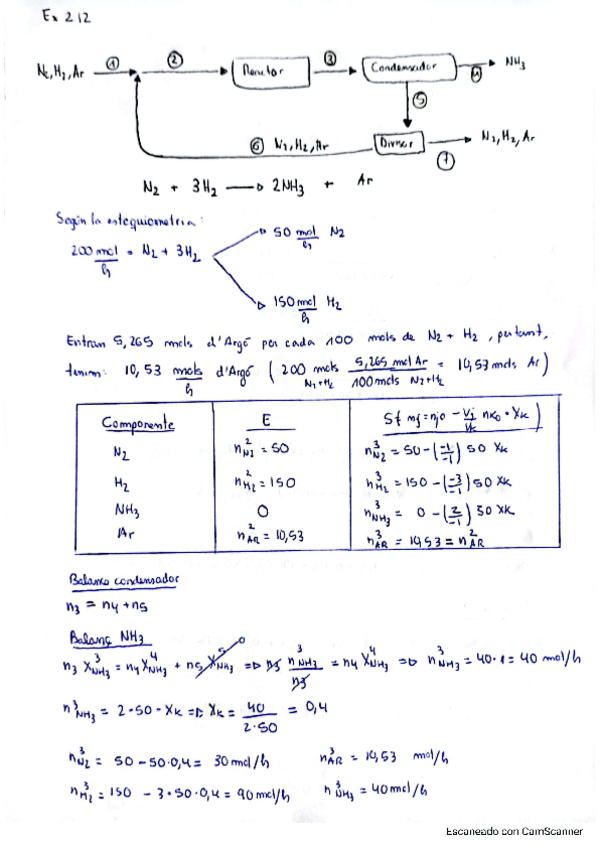 Ex 2.12
N₂, H₂, Ar ① ② Reactor ③ Condensador ④ NH₃
⑤
⑥ N₂, H₂, Ar Divisor N₂, H₂, Ar
⑦
N₂ + 3H₂ → 2NH₃ + Ar
Según la estequiometria:
50 mol/h N₂
200 mol/h = N₂ + 3H₂
150 mol/h H₂
Entran 5,265 mols d'Argó per cada 100 mols de N₂ + H₂, pertant,
tenim: 10,53 mols/h d'Argó (200 mols N₂+H₂ 5,265 mol Ar / 100 mols N₂+H₂ = 10,53 mols Ar)
Componente E S{nj = njo - νj/νk nko · Xk}
N₂ n²N₂ = 50 n³N₂ = 50 - (-1/-1) 50 Xk
H₂ n²H₂ = 150 n³H₂ = 150 - (-3/-1) 50 Xk
NH₃ 0 n³NH₃ = 0 - (2/-1) 50 Xk
Ar n²AR = 10,53 n³AR = 10,53 = n²AR
Balance condensador
n₃ = n₄ + n₅
Balanç NH₃
n₃ X³NH₃ = n₄ X⁴NH₃ + n₅ X⁵NH₃ 0 => n₃ n³NH₃/n₃ = n₄ X⁴NH₃ => n³NH₃ = 40·1 = 40 mol/h
n³NH₃ = 2·50·Xk => Xk = 40/2·50 = 0,4
n³N₂ = 50 - 50·0,4 = 30 mol/h n³AR = 10,53 mol/h
n³H₂ = 150 - 3·50·0,4 = 90 mol/h n³NH₃ = 40 mol/h
Escaneado con CamScanner